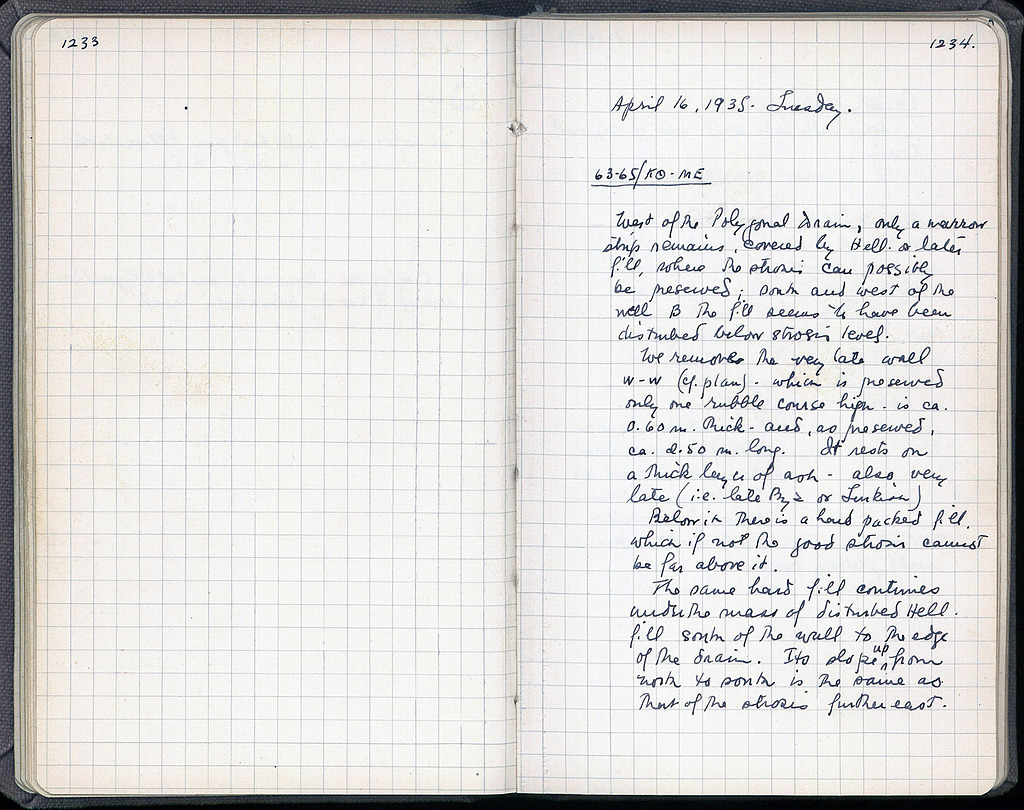 1233
1234.
April 16, 1935. Tuesday.
63-65/ΚΘ-ΜΕ
West of the Polygonal Drain, only a narrow
strip remains, covered by Hell. or later
fill, where the strosis can possibly
be preserved; south and west of the
well B the fill seems to have been
disturbed below strosis level.
We remove the very late wall
w-w (cf. plan) - which is preserved
only one rubble course high - is ca.
0.60 m. thick - and, as preserved,
ca. 2.50 m. long. It rests on
a thick layer of ash - also very
late (i.e. late Byz or Turkish)
Below it there is a hard packed fill.
which if not the good strosis cannot
be far above it.
The same hard fill continues
under the mass of disturbed Hell.
fill south of the wall to the edge
of the drain. Its slope up from
north to south is the same as
that of the strosis further east.